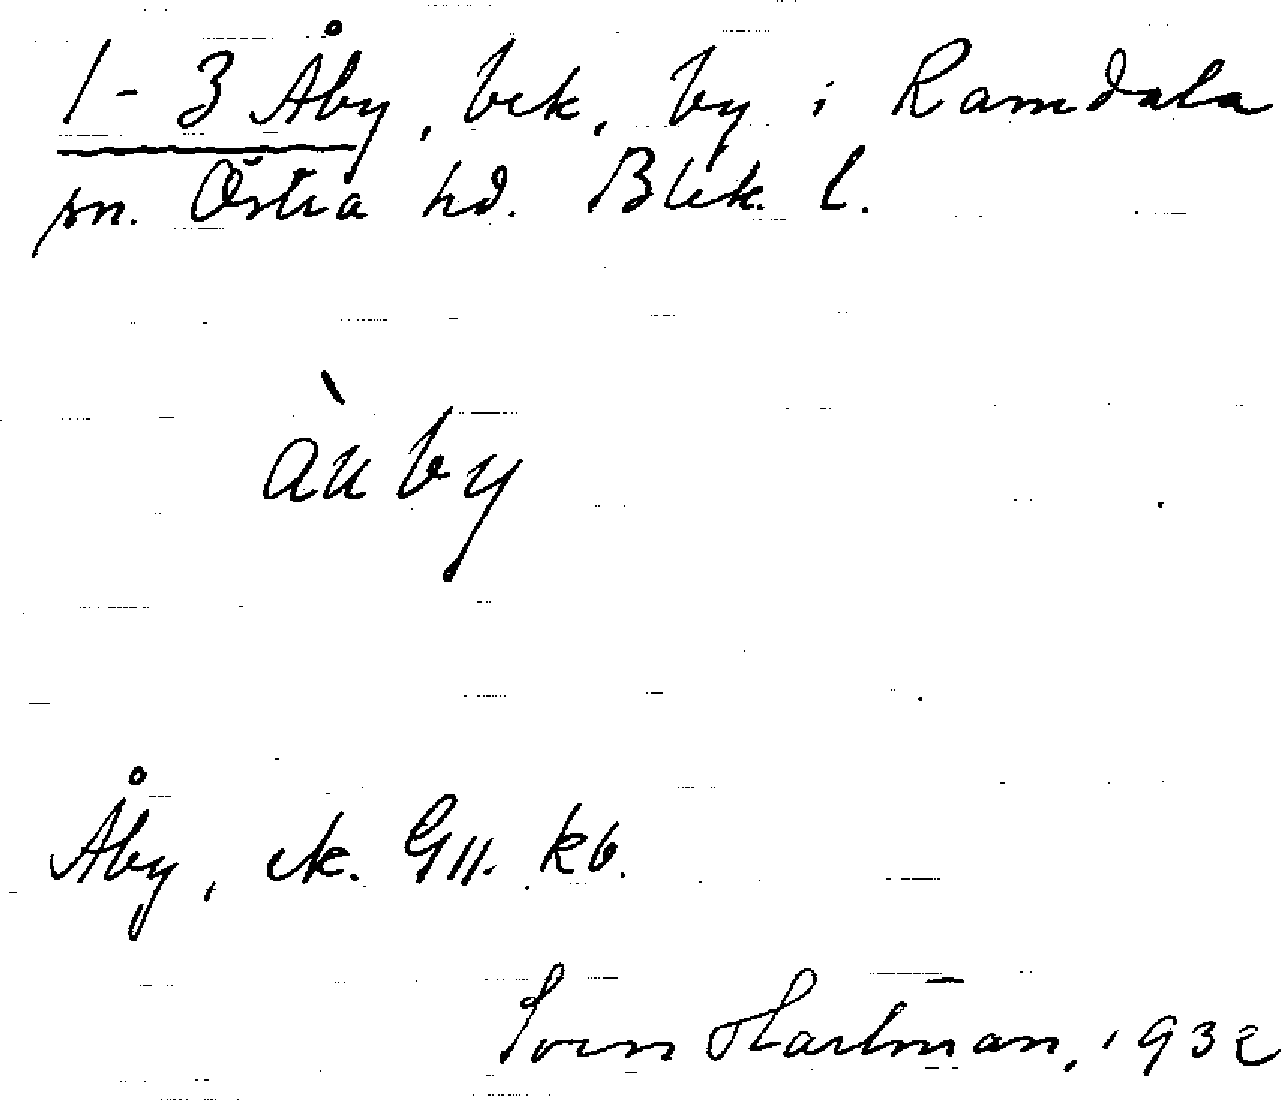 1-3 Åby, bek, by i Ramdala
sn. Östra hd. Blek. l.
àuby
Åby, ek. GII. kb.
Sven Hartman, 1932